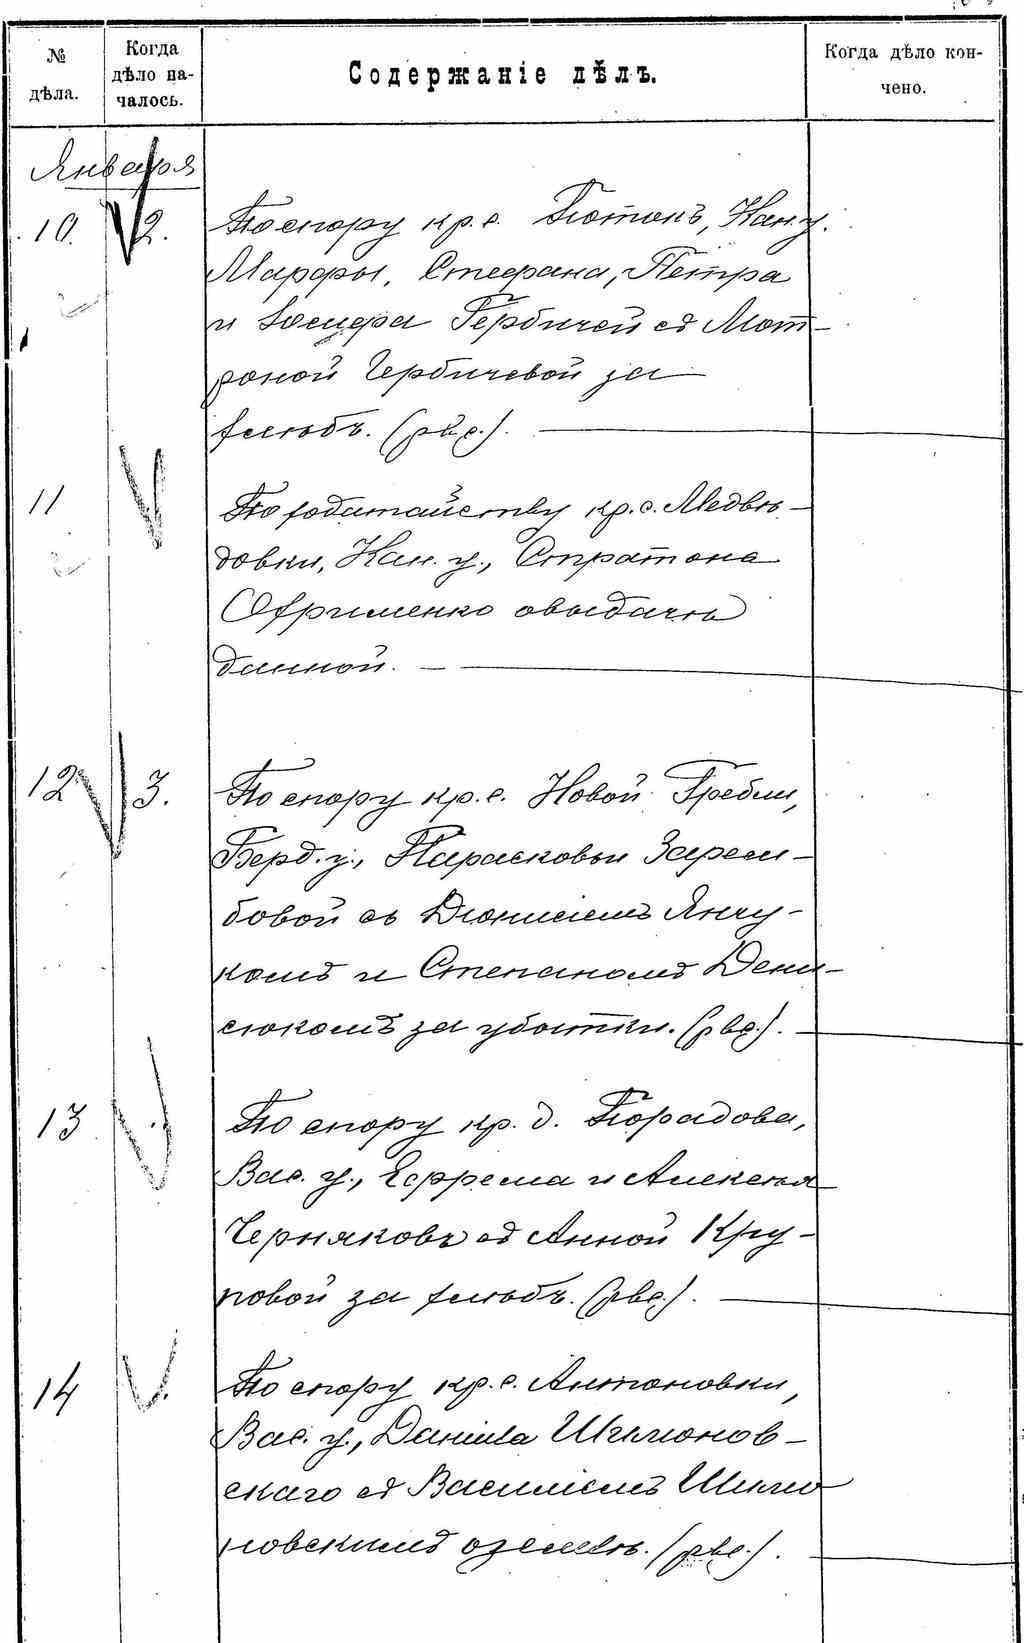 № дѣла.
Когда дѣло началось.
Содержаніе дѣлъ.
Когда дѣло кончено.
Января
10. 2. По спору кр. с. Потокъ, Кан. у.
Марфы, Стефана, Петра
и Іосифа Гербичей съ Мот-
роной Гербичевой за
хлѣбъ.
11 По ходатайству кр. с. Медвѣ-
довки, Кан. у., Стратона
Охрименко о выдачѣ
данной.
12 3. По спору кр. с. Новой Гребли,
Берд. у., Парасковьи Зарем-
бовой съ Діонисіемъ Янчу-
комъ и Степаномъ Дени-
сюкомъ за убытки.
13 По спору кр. д. Порадова,
Вас. у., Ефрема и Алексѣя
Черняковъ съ Анной Кру-
повой за хлѣбъ.
14 По спору кр. с. Антоновки,
Вас. у., Даніила Шимонов-
скаго съ Василіемъ Шимо
новскимъ о землѣ.